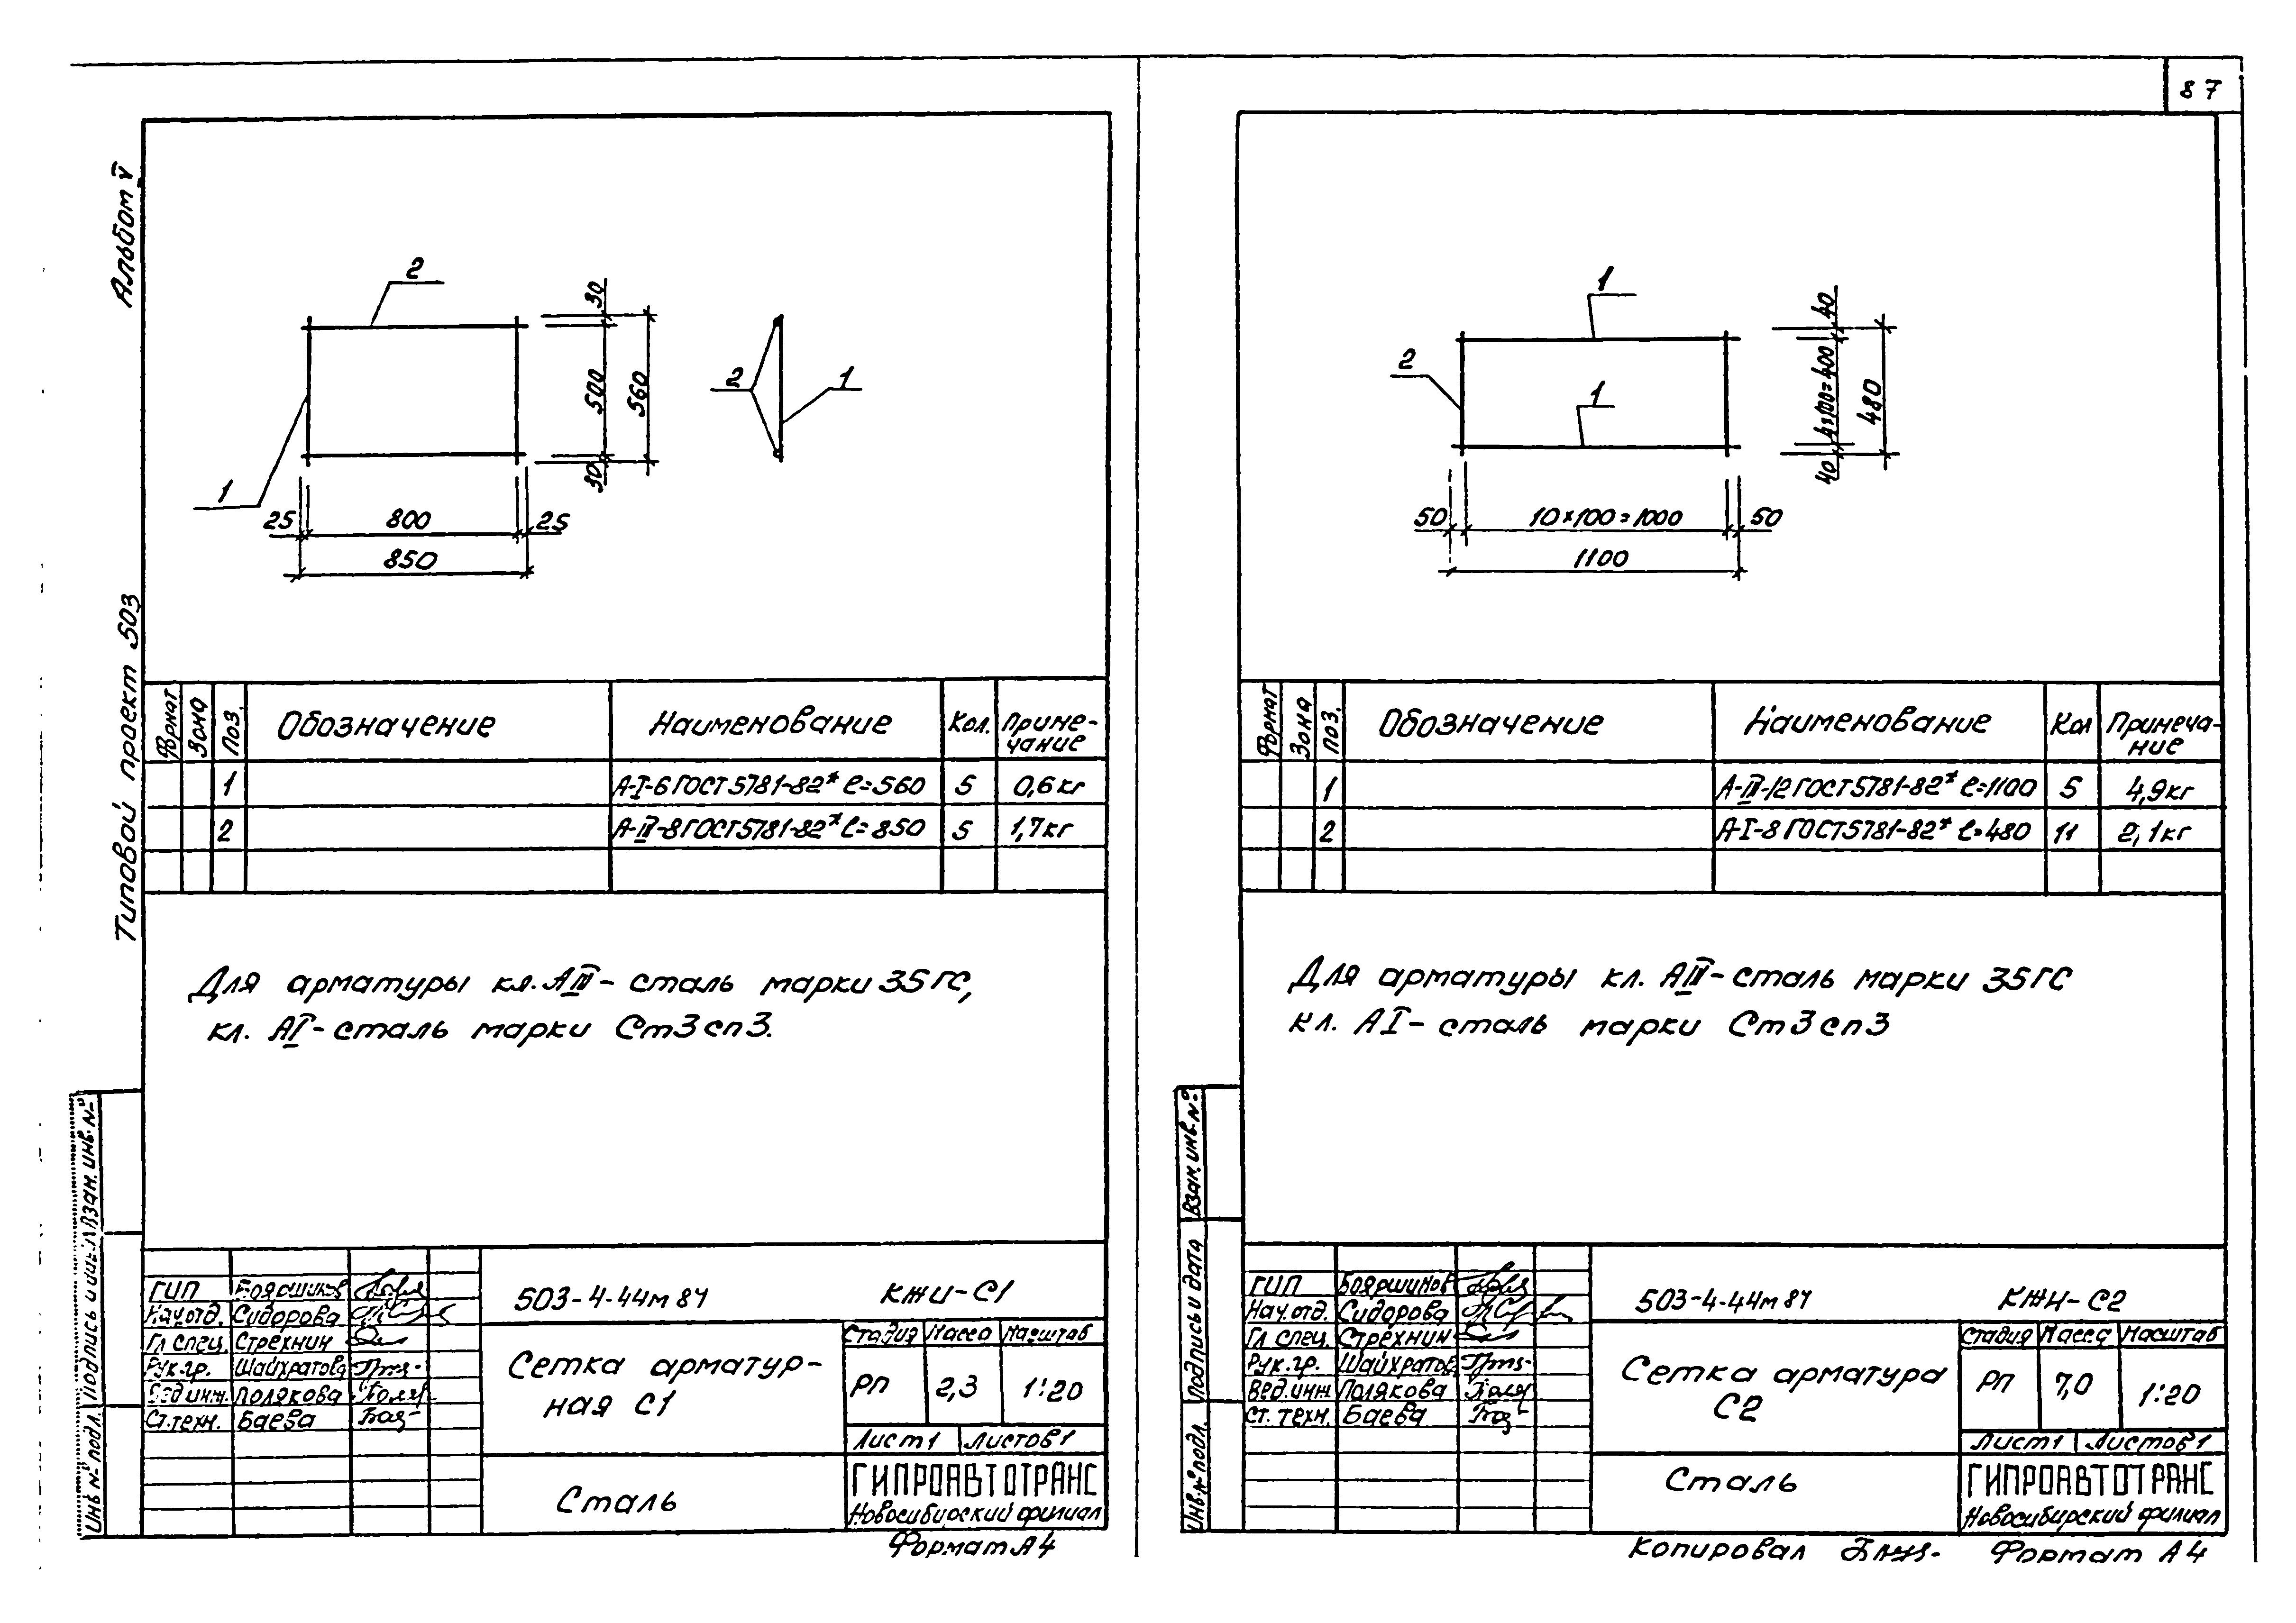 87
Альбом V
Типовой проект 503
2
1
2
1
30
500
30
560
25
800
25
850
Формат
Зона
Поз.
Обозначение
Наименование
Кол.
Приме-
чание
1 А-I-6 ГОСТ 5781-82* ℓ=560 5 0,6кг
2 А-III-8 ГОСТ 5781-82* ℓ=850 5 1,7кг
Для арматуры кл. АIII - сталь марки 35ГС,
кл. АI - сталь марки Ст3сп3.
Взам. инв. №
Подпись и дата
Инв № подл.
ГИП Бояршинов
Нач.отд. Сидорова
Гл спец. Стрехнин
Рук.гр. Шайхратова
Вед инж. Полякова
Ст.техн. Баева
503-4-44м 87 КЖИ-С1
Сетка арматур-
ная С1
Стадия Масса Масштаб
РП 2,3 1:20
Лист 1 Листов 1
Сталь
ГИПРОАВТОТРАНС
Новосибирский филиал
Формат А4
1
2
1
40
4х100=400
40
480
50
10×100=1000
50
1100
Формат
Зона
Поз.
Обозначение
Наименование
Кол
Примеча-
ние
1 А-III-12 ГОСТ 5781-82* ℓ=1100 5 4,9кг
2 А-I-8 ГОСТ 5781-82* ℓ=480 11 2,1кг
Для арматуры кл. АIII - сталь марки 35ГС
кл. АI - сталь марки Ст3сп3
Взам. инв. №
Подпись и дата
Инв. № подл.
ГИП Бояршинов
Нач.отд. Сидорова
Гл. спец. Стрехнин
Рук.гр. Шайхратов
Вед.инж Полякова
Ст. техн. Баева
503-4-44м 87 КЖИ-С2
Сетка арматура
С2
Стадия Масса Масштаб
РП 7,0 1:20
Лист 1 Листов 1
Сталь
ГИПРОАВТОТРАНС
Новосибирский филиал
Копировал Формат А4